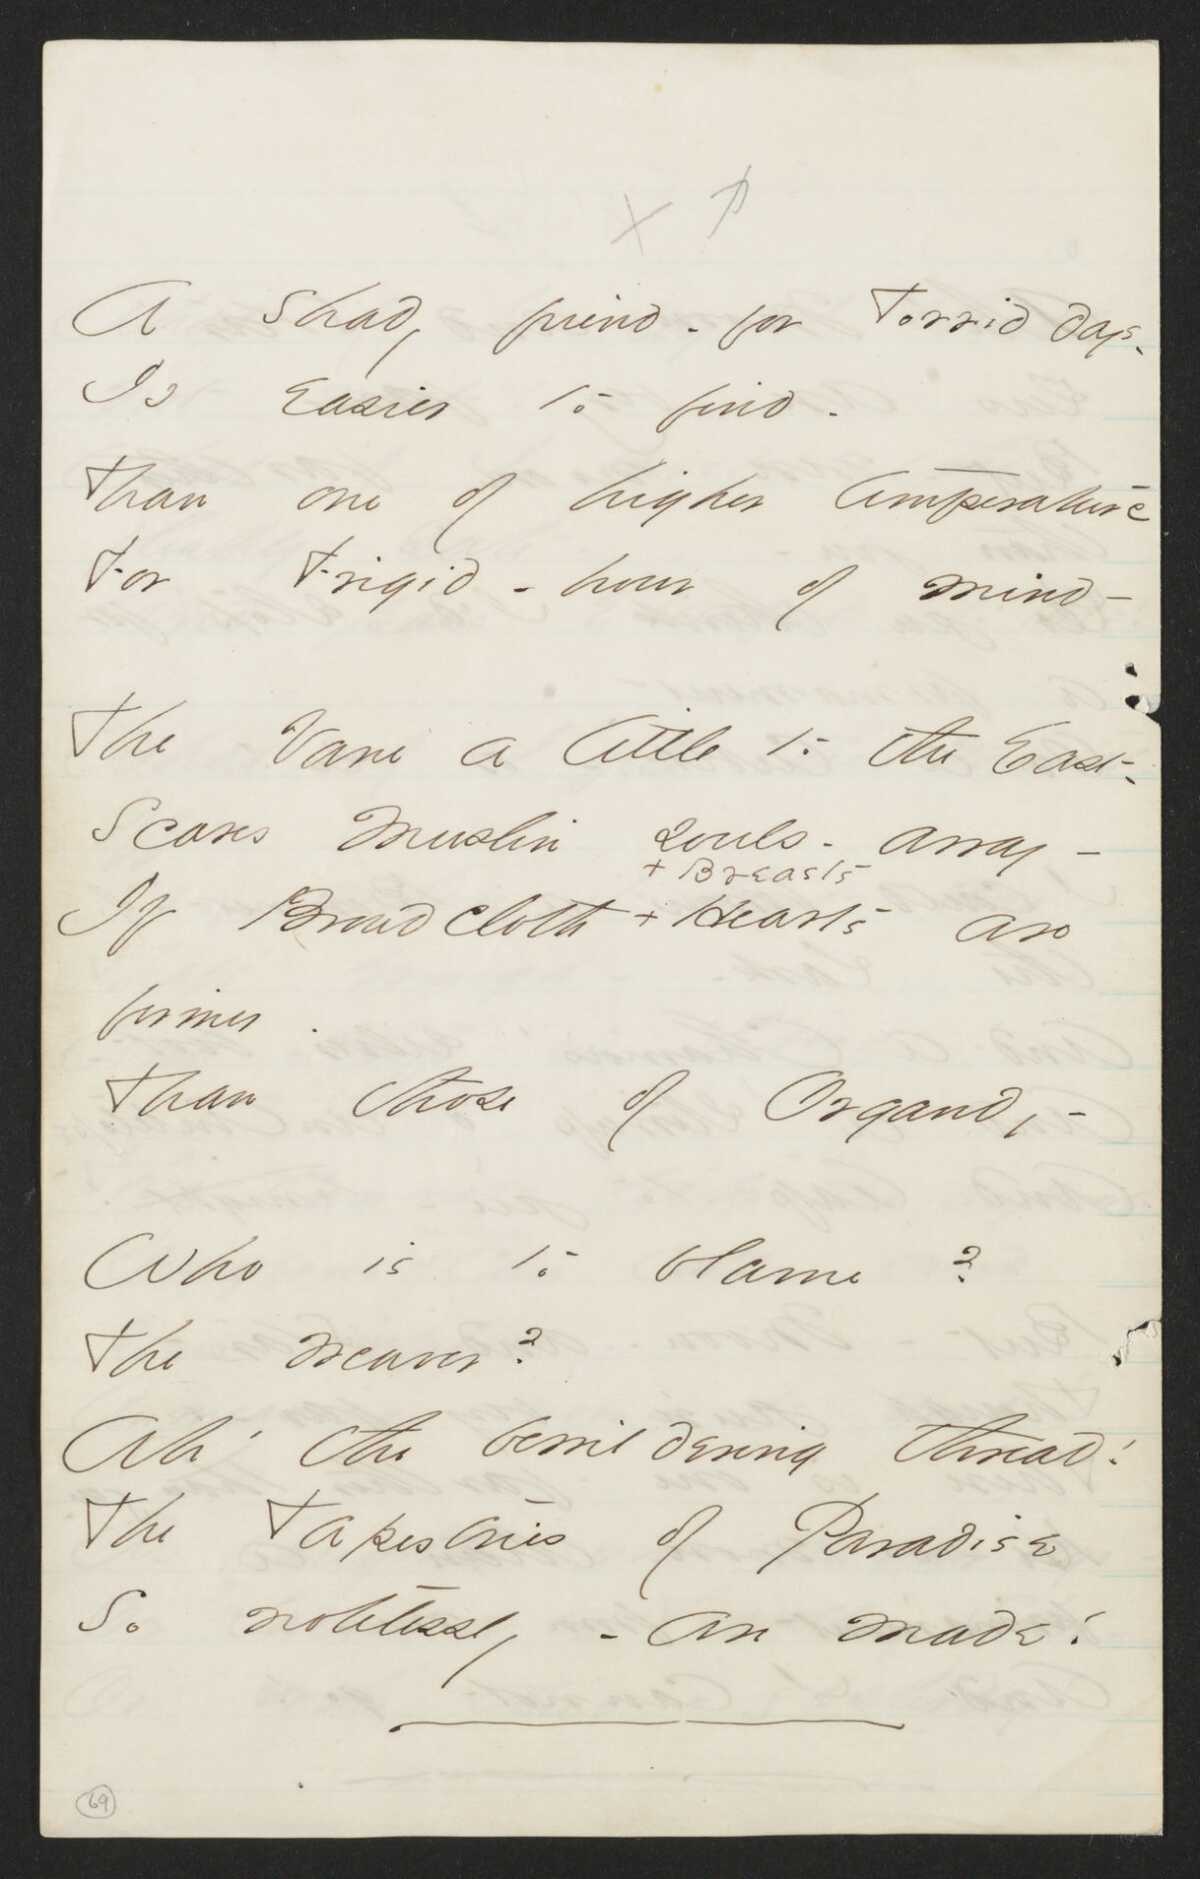 A Shady friend - for Torrid days -
Is Easier to find -
Than one of higher temperature
For Frigid - hour of mind -
The Vane a little to the East -
Scares Muslin souls - away -
+ Breasts
If Broadcloth + Hearts are
firmer -
Than those of Organdy -
Who is to blame?
The Weaver?
Ah' the bewildering thread!
The Tapestries of Paradise
So notelessly - are made!
69